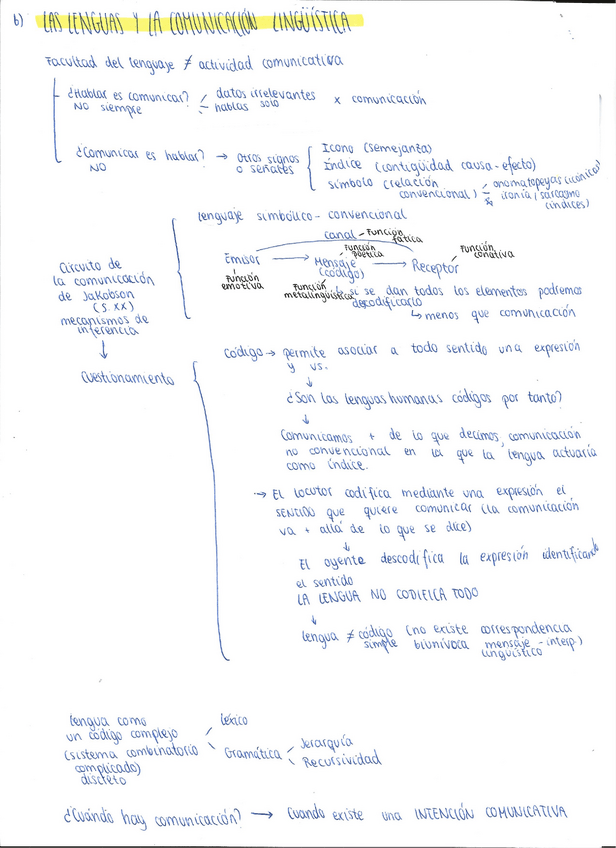 b) LAS LENGUAS Y LA COMUNICACIÓN LINGÜÍSTICA
Facultad del lenguaje ≠ actividad comunicativa
¿Hablar es comunicar? datos irrelevantes x comunicación
NO siempre hablas solo
¿Comunicar es hablar? → otros signos o señales
NO
Icono (semejanza)
Índice (contigüidad causa-efecto)
Símbolo (relación convencional) onomatopeyas (icónica)
ironía, sarcasmo (índices)
Lenguaje simbólico-convencional
canal - Función fática
Emisor → Mensaje (código) → Receptor
Función poética
Función conativa
Función emotiva
Función metalingüística
↳ si se dan todos los elementos podremos
decodificarlo
↳ menos que comunicación
Circuito de
la comunicación
de Jakobson
(S. XX)
mecanismos de
inferencia
↓
Cuestionamiento
Código → permite asociar a todo sentido una expresión
y vs.
↓
¿Son las lenguas humanas códigos por tanto?
↓
Comunicamos + de lo que decimos, comunicación
no convencional en la que la lengua actuaría
como índice.
→ El locutor codifica mediante una expresión el
SENTIDO que quiere comunicar (la comunicación
va + allá de lo que se dice)
↓
El oyente descodifica la expresión identificando
el sentido
LA LENGUA NO CODIFICA TODO
↓
lengua ≠ código (no existe correspondencia
simple biunívoca mensaje-interp.)
lingüístico
Lengua como
un código complejo
(sistema combinatorio
complicado)
discreto
Léxico
Gramática
Jerarquía
Recursividad
¿Cuándo hay comunicación? → Cuando existe una INTENCIÓN COMUNICATIVA